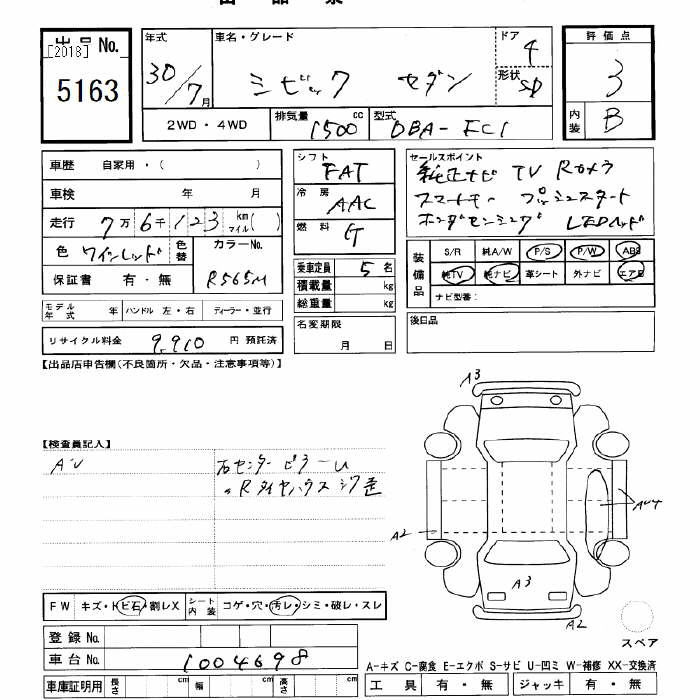 出品票
出品 No.
[2018]
5163
年式 30/7月
車名・グレード シビック セダン
ドア 4
形状 SD
評価点 3
内装 B
2WD・4WD
排気量 1500 cc
型式 DBA-FC1
車歴 自家用・( )
車検 年 月
走行 7万6千123 km マイル( )
色 ワインレッド
色替
カラーNo. R565M
保証書 有・無
モデル年式 年
ハンドル 左・右
ディーラー・並行
リサイクル料金 9,910 円 預託済
シフト FAT
冷房 AAC
燃料 G
乗車定員 5 名
積載量 kg
総重量 kg
名変期限
月 日
セールスポイント
純正ナビ TV Rカメラ
スマートキー プッシュスタート
ホンダセンシング LEDヘッド
装備品
S/R 純A/W P/S P/W ABS
純TV 純ナビ 革シート 外ナビ エアB
ナビ型番:
後日品
【出品店申告欄(不良箇所・欠品・注意事項等)】
【検査員記入】
右センターピラーU
〃Rタイヤハウス
A3
A2
A3
A2
スペア
FW キズ・ヒビ石・割レX
シート内装 コゲ・穴・汚レ・シミ・破レ・スレ
登録 No.
車台 No. 1004698
車庫証明用 長さ cm 幅 cm 高さ cm
A-キズ C-腐食 E-エクボ S-サビ U-凹ミ W-補修 XX-交換済
工具 有・無 ジャッキ 有・無